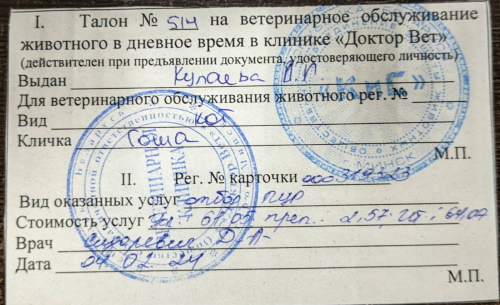 I. Талон № 514 на ветеринарное обслуживание
животного в дневное время в клинике «Доктор Вет»
(действителен при предъявлении документа, удостоверяющего личность)
Выдан
Для ветеринарного обслуживания животного рег. №
Вид кот
Кличка Гоша
М.П.
«КиГ»
г. Минск
II. Рег. № карточки
Вид оказанных услуг отбор пур
Стоимость услуг преп.: 2,57
Врач
Дата 04.02.24
М.П.